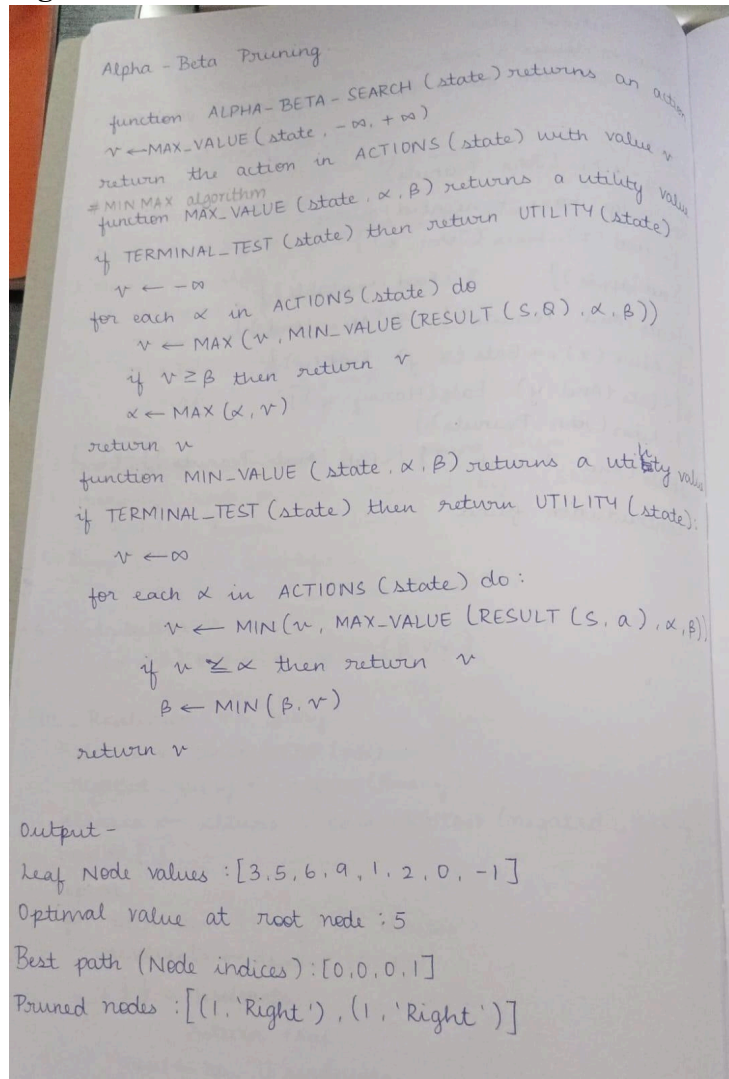 Alpha - Beta Pruning
function ALPHA-BETA-SEARCH (state) returns an action
v ← MAX_VALUE (state, -∞, +∞)
return the action in ACTIONS (state) with value v
# MIN MAX algorithm
function MAX_VALUE (state, α, β) returns a utility value
if TERMINAL_TEST (state) then return UTILITY (state)
v ← -∞
for each α in ACTIONS (state) do
v ← MAX (v, MIN_VALUE (RESULT (S, Q), α, β))
if v ≥ β then return v
α ← MAX (α, v)
return v
function MIN_VALUE (state, α, β) returns a utility value
if TERMINAL_TEST (state) then return UTILITY (state):
v ← ∞
for each α in ACTIONS (state) do:
v ← MIN (v, MAX_VALUE (RESULT (S, a), α, β))
if v ≤ α then return v
β ← MIN (β, v)
return v
Output -
Leaf Node values : [3, 5, 6, 9, 1, 2, 0, -1]
Optimal value at root node : 5
Best path (Node indices) : [0, 0, 0, 1]
Pruned nodes : [(1, 'Right'), (1, 'Right')]